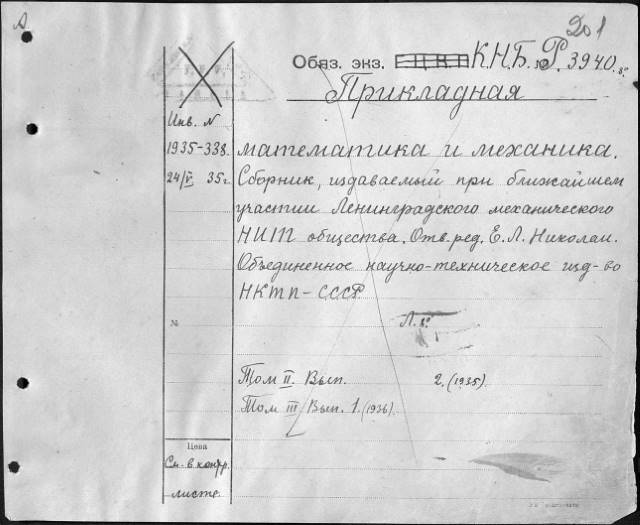 201
Обяз. экз. Е.Ц.К.П К.Н.Б. № Р. 3940. 8°
Прикладная
Инв. N
1935-338. математика и механика.
24/V 35г. Сборник, издаваемый при ближайшем
участии Ленинградского механического
НИТ общества. Отв. ред. Е. Л. Николаи.
Объединенное научно-техническое изд-во
НКТП - СССР
№ Л. 8°
Том II. Вып. 2. (1935).
Том III Вып. 1. (1936).
Цена
См. в контр.
листе.